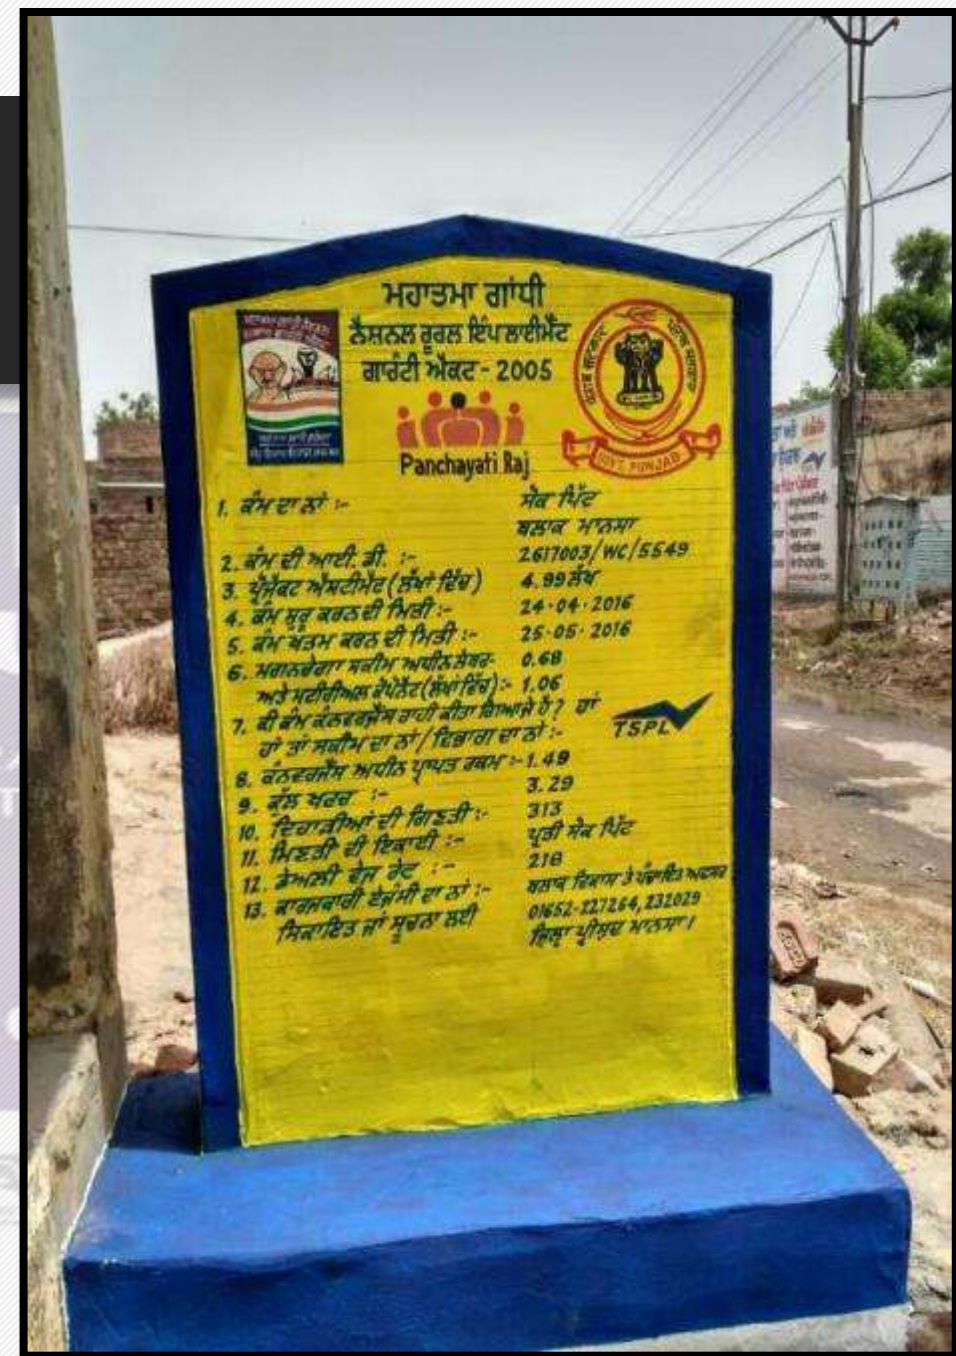 ਮਹਾਤਮਾ ਗਾਂਧੀ
ਨੈਸ਼ਨਲ ਰੂਰਲ ਇੰਪਲਾਈਮੈਂਟ
ਗਾਰੰਟੀ ਐਕਟ - 2005
Panchayati Raj
GOVT. PUNJAB
1. ਕੰਮ ਦਾ ਨਾਂ :- ਸੋਕ ਪਿੱਟ
ਬਲਾਕ ਮਾਨਸਾ
2. ਕੰਮ ਦੀ ਆਈ. ਡੀ. :- 2617003/WC/5549
3. ਪ੍ਰੋਜੈਕਟ ਐਸਟੀਮੇਟ (ਲੱਖਾਂ ਵਿੱਚ) 4.99 ਲੱਖ
4. ਕੰਮ ਸ਼ੁਰੂ ਕਰਨ ਦੀ ਮਿਤੀ :- 24·04·2016
5. ਕੰਮ ਖਤਮ ਕਰਨ ਦੀ ਮਿਤੀ :- 25·05·2016
6. ਮਗਨਰੇਗਾ ਸਕੀਮ ਅਧੀਨ ਲੇਬਰ- 0.68
ਅਤੇ ਮਟੀਰੀਅਲ ਕੰਪੋਨੈਂਟ (ਲੱਖਾਂ ਵਿੱਚ) :- 1.06
7. ਕੀ ਕੰਮ ਕੰਨਵਰਜੈਂਸ ਰਾਹੀ ਕੀਤਾ ਗਿਆ ਹੈ? ਹਾਂ
ਹਾਂ ਤਾਂ ਸਕੀਮ ਦਾ ਨਾਂ / ਵਿਭਾਗ ਦਾ ਨਾਂ :- TSPL
8. ਕੰਨਵਰਜੈਂਸ ਅਧੀਨ ਪ੍ਰਾਪਤ ਰਕਮ :- 1.49
9. ਕੁੱਲ ਖਰਚ :- 3.29
10. ਦਿਹਾੜੀਆਂ ਦੀ ਗਿਣਤੀ :- 313
11. ਮਿਣਤੀ ਦੀ ਇਕਾਈ :- ਪ੍ਰਤੀ ਸੋਕ ਪਿੱਟ
12. ਡੇਅਲੀ ਵੇਜ ਰੇਟ :- 218
13. ਕਾਰਜਕਾਰੀ ਏਜੰਸੀ ਦਾ ਨਾਂ :- ਬਲਾਕ ਵਿਕਾਸ ਤੇ ਪੰਚਾਇਤ ਅਫਸਰ
ਸ਼ਿਕਾਇਤ ਜਾਂ ਸੂਚਨਾ ਲਈ 01652-227264, 232029
ਜ਼ਿਲ੍ਹਾ ਪ੍ਰੀਸ਼ਦ ਮਾਨਸਾ।